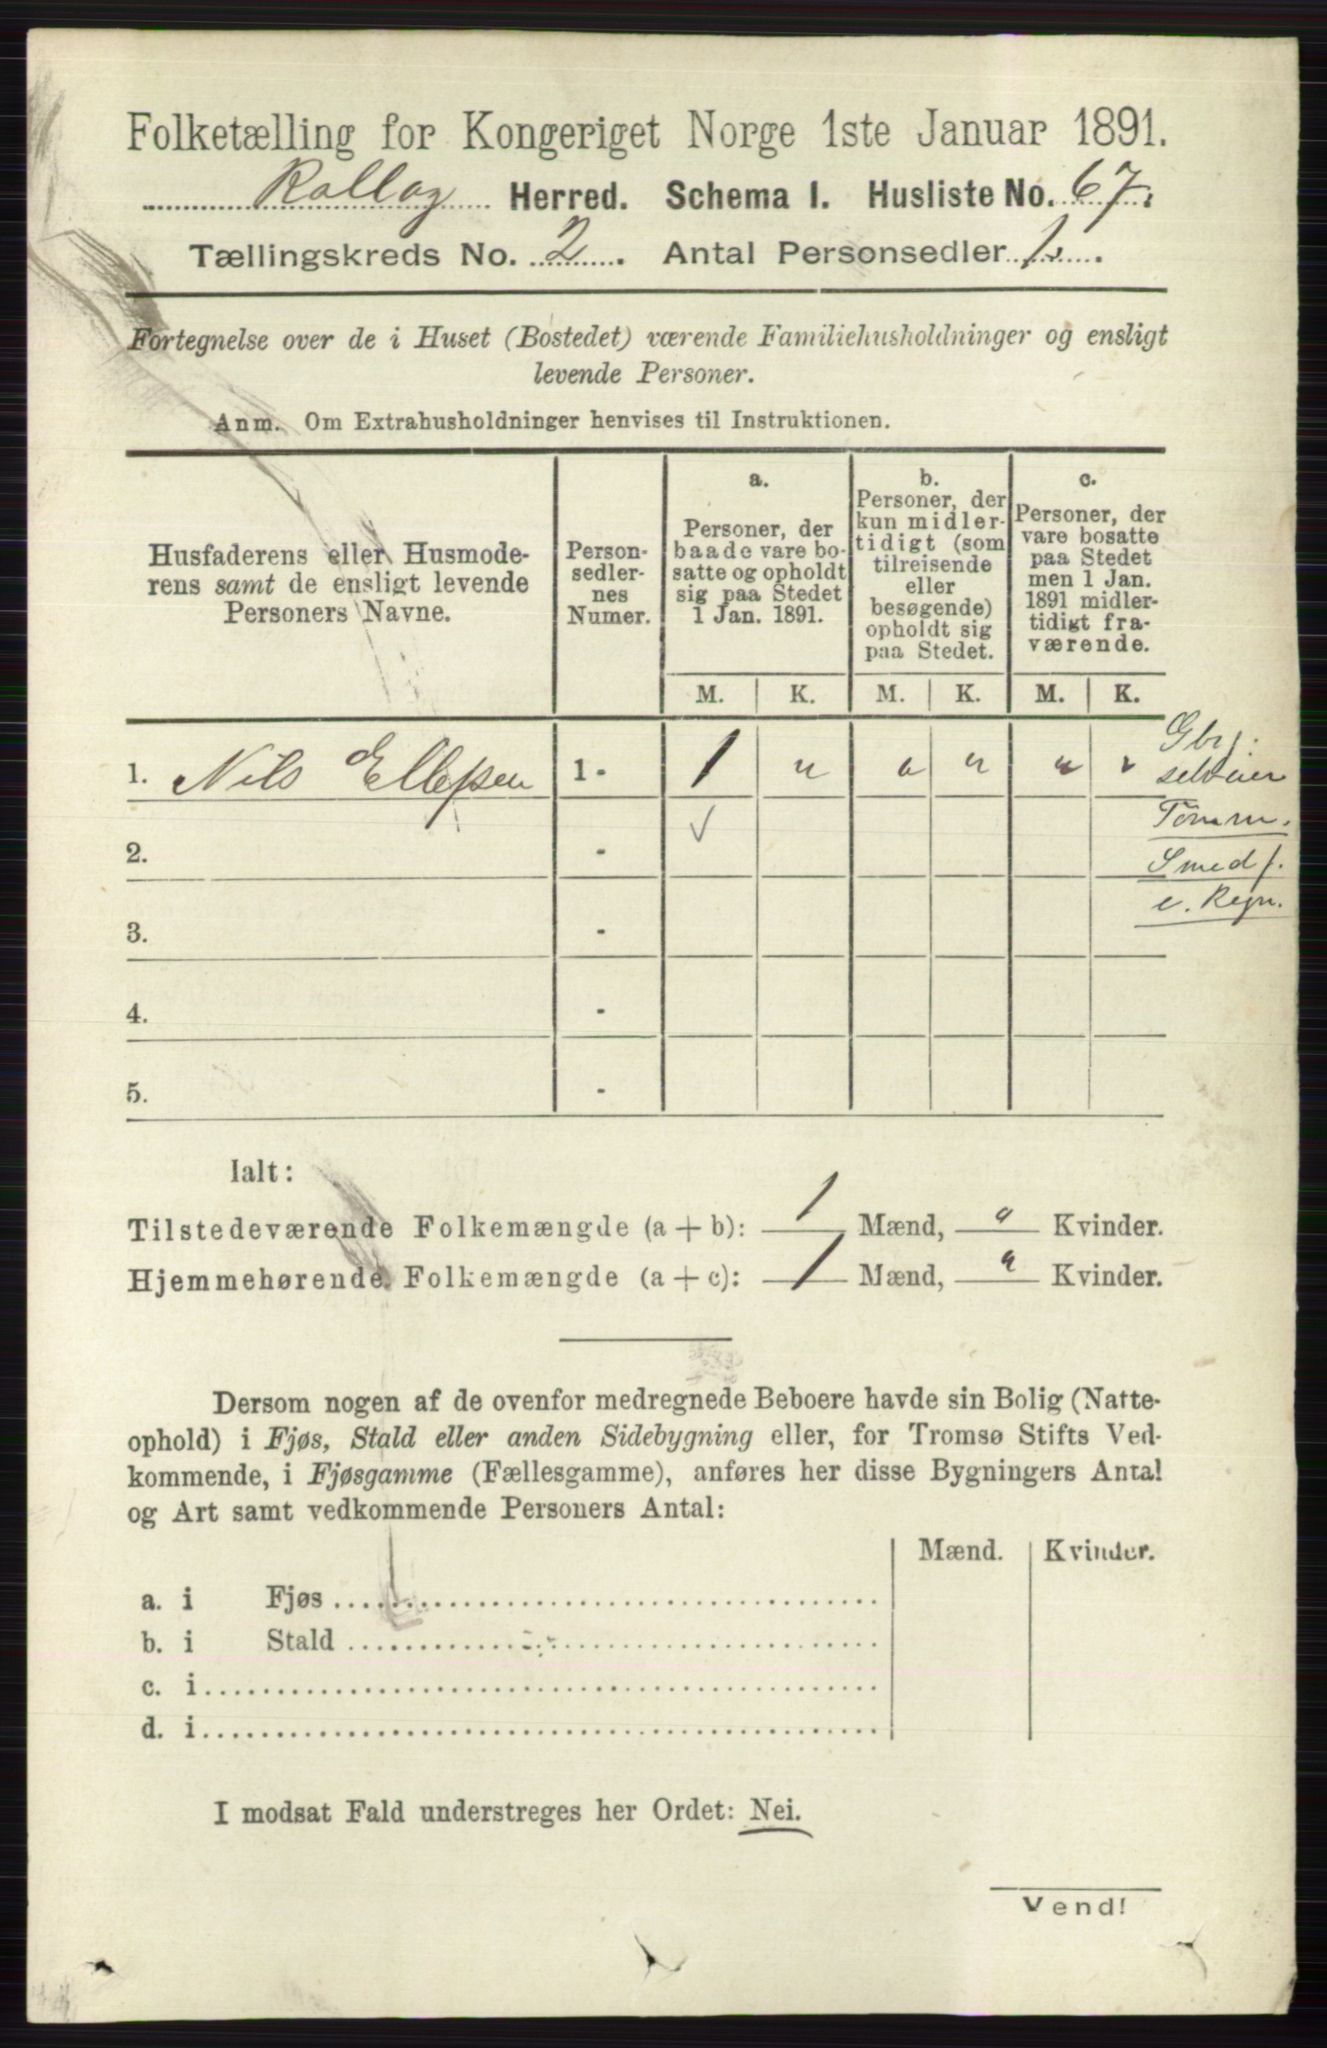 Folketælling for Kongeriget Norge 1ste Januar 1891.
Rollag Herred. Schema I. Husliste No. 67.
Tællingskreds No. 2. Antal Personsedler 1.
Fortegnelse over de i Huset (Bostedet) værende Familiehusholdninger og ensligt
levende Personer.
Anm. Om Extrahusholdninger henvises til Instruktionen.
Husfaderens eller Husmode-
rens samt de ensligt levende
Personers Navne.
Person-
sedler-
nes
Numer.
a.
Personer, der
baade vare bo-
satte og opholdt
sig paa Stedet
1 Jan. 1891.
b.
Personer, der
kun midler-
tidigt (som
tilreisende
eller
besøgende)
opholdt sig
paa Stedet.
c.
Personer, der
vare bosatte
paa Stedet
men 1 Jan.
1891 midler-
tidigt fra-
værende.
M. K. M. K. M. K.
1. Nils Ellefsen 1 - 1 " " " " "
Gbr:
selveier
Tømm.
Smed f.
e. Regn.
2. - ✓
3. -
4. -
5. -
Ialt:
Tilstedeværende Folkemængde (a + b): 1 Mænd, " Kvinder.
Hjemmehørende Folkemængde (a + c): 1 Mænd, " Kvinder.
Dersom nogen af de ovenfor medregnede Beboere havde sin Bolig (Natte-
ophold) i Fjøs, Stald eller anden Sidebygning eller, for Tromsø Stifts Ved-
kommende, i Fjøsgamme (Fællesgamme), anføres her disse Bygningers Antal
og Art samt vedkommende Personers Antal:
Mænd. Kvinder.
a. i Fjøs
b. i Stald
c. i
d. i
I modsat Fald understreges her Ordet: Nei.
Vend!